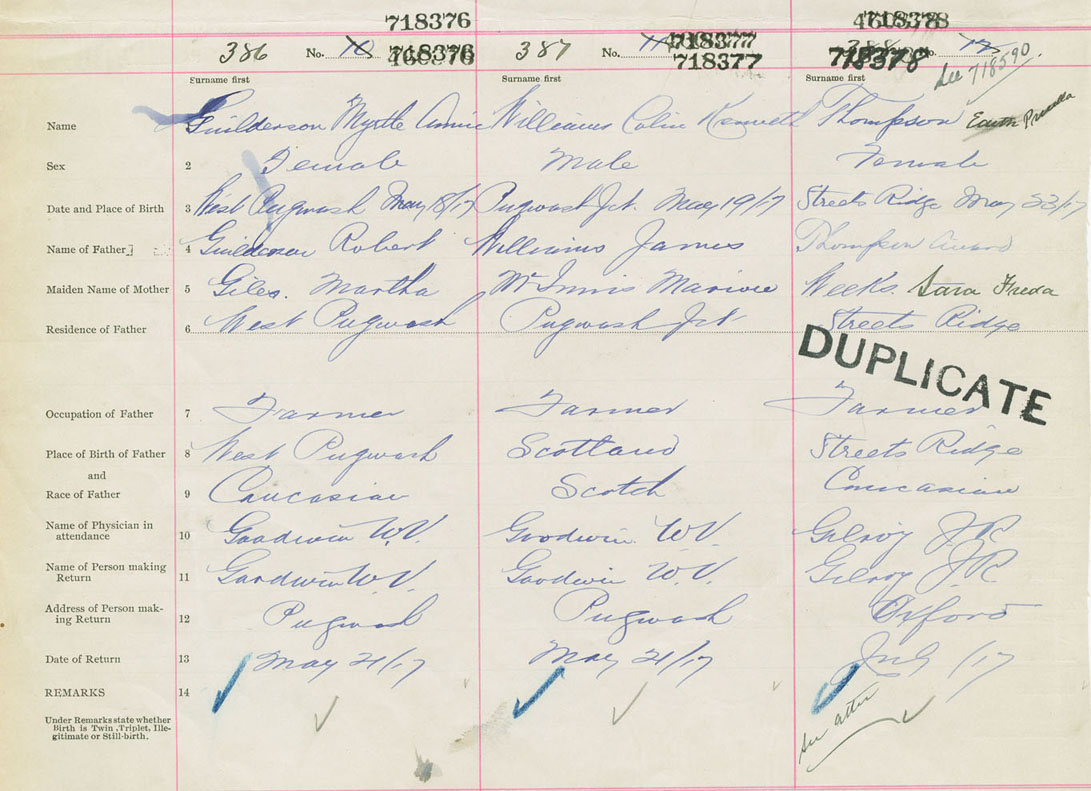 718376
386 No. 10 718376 387 No. 11 718377 No. 12 718378
718377 See 718590.
Surname first Surname first Surname first
Name Guilderson Myrtle Annie Williams Colin Thompson Edith
Sex 2 Female Male Female
Date and Place of Birth 3 West Pugwash May 18/17 Pugwash Jct. May 19/17 Streets Ridge May 23/17
Name of Father 4 Guilderson Robert Williams James Thompson
Maiden Name of Mother 5 Giles. Martha McInnis Weeks. Sara Freda
Residence of Father 6 West Pugwash Pugwash Jct Streets Ridge
DUPLICATE
Occupation of Father 7 Farmer Farmer Farmer
Place of Birth of Father 8 West Pugwash Scotland Streets Ridge
and
Race of Father 9 Caucasian Scotch Caucasian
Name of Physician in
attendance 10 Goodwin W.V. Goodwin W.V. Gilroy J.R.
Name of Person making
Return 11 Goodwin W.V. Goodwin W.V. Gilroy J.R.
Address of Person mak-
ing Return 12 Pugwash Pugwash Oxford
Date of Return 13 May 21/17 May 21/17 July /17
REMARKS 14
see after
Under Remarks state whether
Birth is Twin, Triplet, Ille-
gitimate or Still-birth.